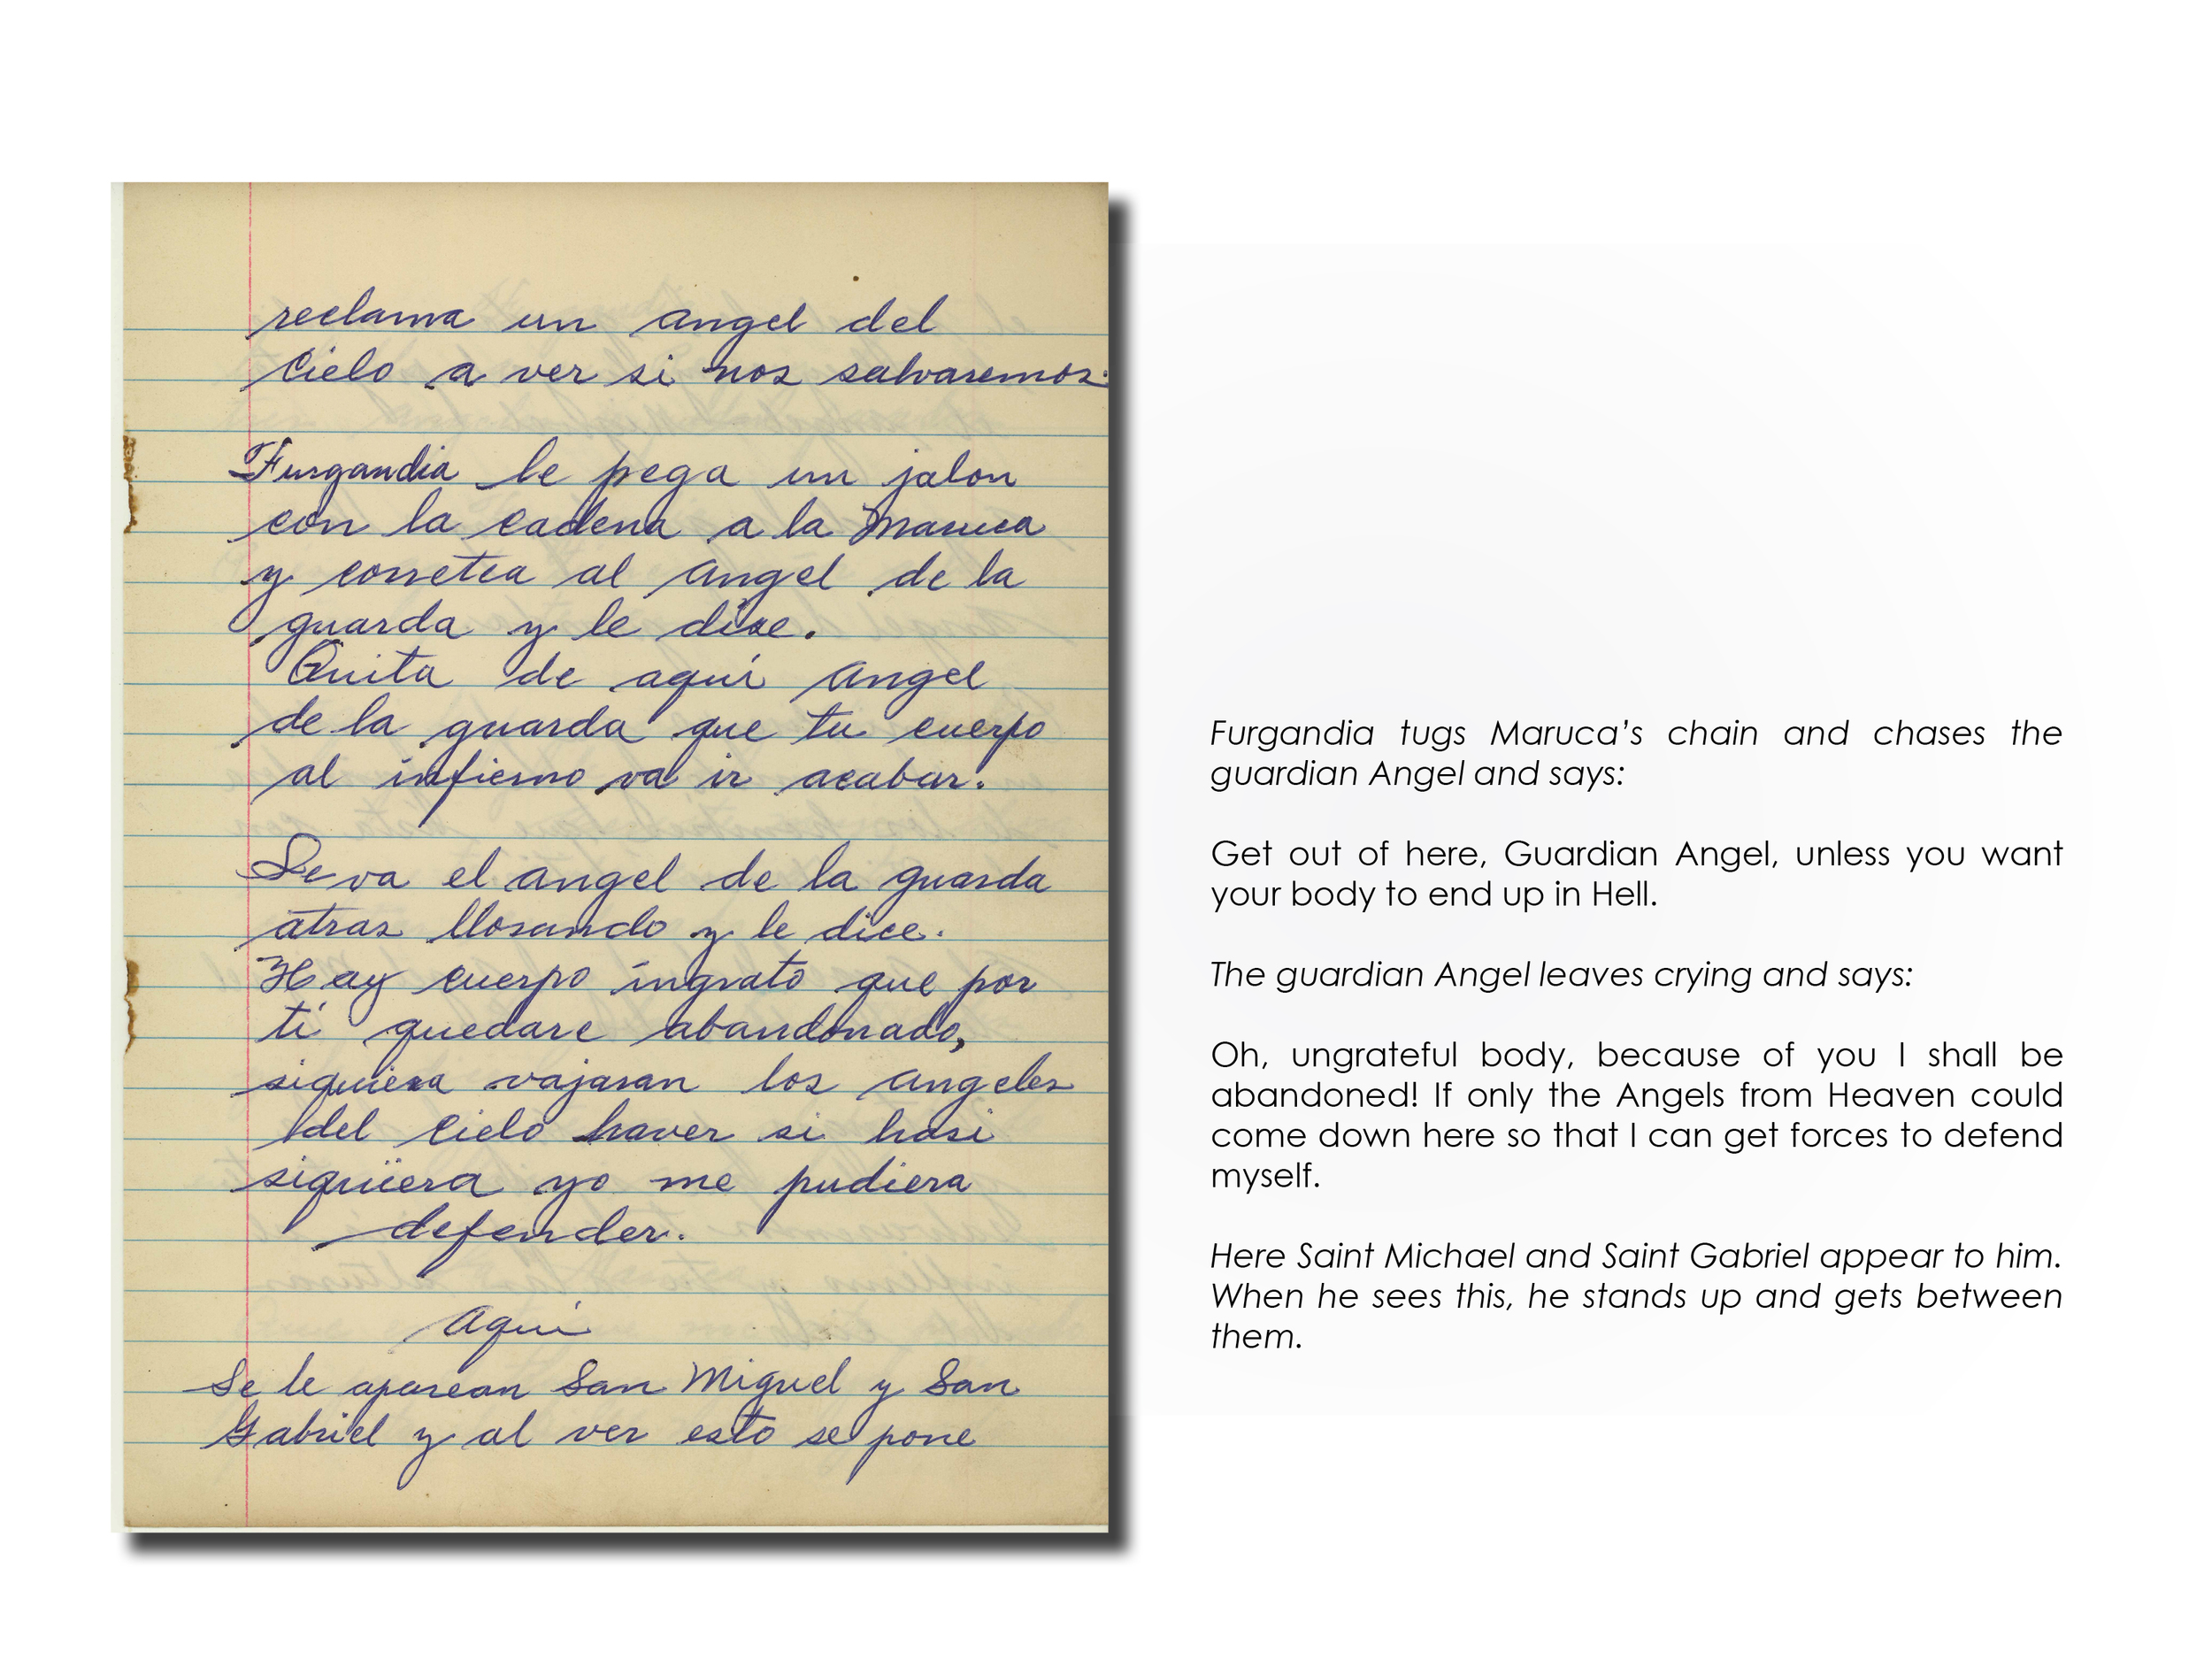 reclama un angel del
Cielo a ver si nos salvaremos.
Furgandia le pega un jalon
con la cadena a la Maruca
y corretea al angel de la
guarda y le dice.
Quita de aquí angel
de la guarda que tu cuerpo
al infierno va ir acabar.
Se va el angel de la guarda
atras llorando y le dice.
Hay cuerpo ingrato que por
ti quedare abandonado,
siquiera vajaran los angeles
del Cielo haver si hasi
siquiera yo me pudiera
defender.
Aqui
Se le aparean San Miguel y San
Gabriel y al ver esto se pone
Furgandia tugs Maruca’s chain and chases the
guardian Angel and says:
Get out of here, Guardian Angel, unless you want
your body to end up in Hell.
The guardian Angel leaves crying and says:
Oh, ungrateful body, because of you I shall be
abandoned! If only the Angels from Heaven could
come down here so that I can get forces to defend
myself.
Here Saint Michael and Saint Gabriel appear to him.
When he sees this, he stands up and gets between
them.